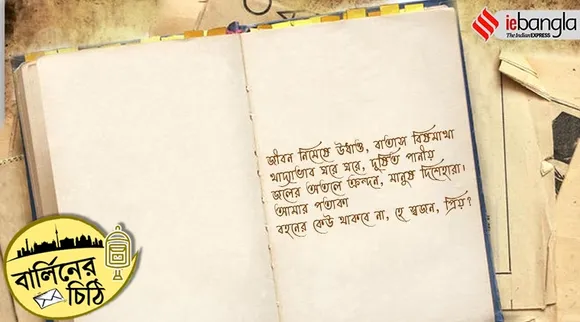 iebangla
The Indian EXPRESS
জীবন নিমেষে উধাও, বাতাস বিষমাখা
খাদ্যাভাব ঘরে ঘরে, দূষিত পানীয়
জলের অতলে ক্রন্দন, মানুষ দিশেহারা।
আমার পতাকা
বহনের কেউ থাকবে না, হে স্বজন, প্রিয়?
বার্লিনের
চিঠি